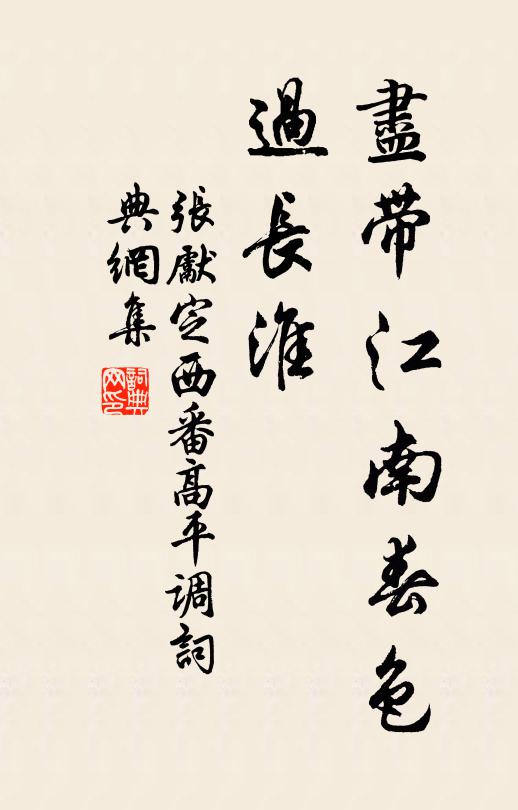 盡帶江南春色
過長淮
張獻定西番高平调詞
典網集
詞典
网印